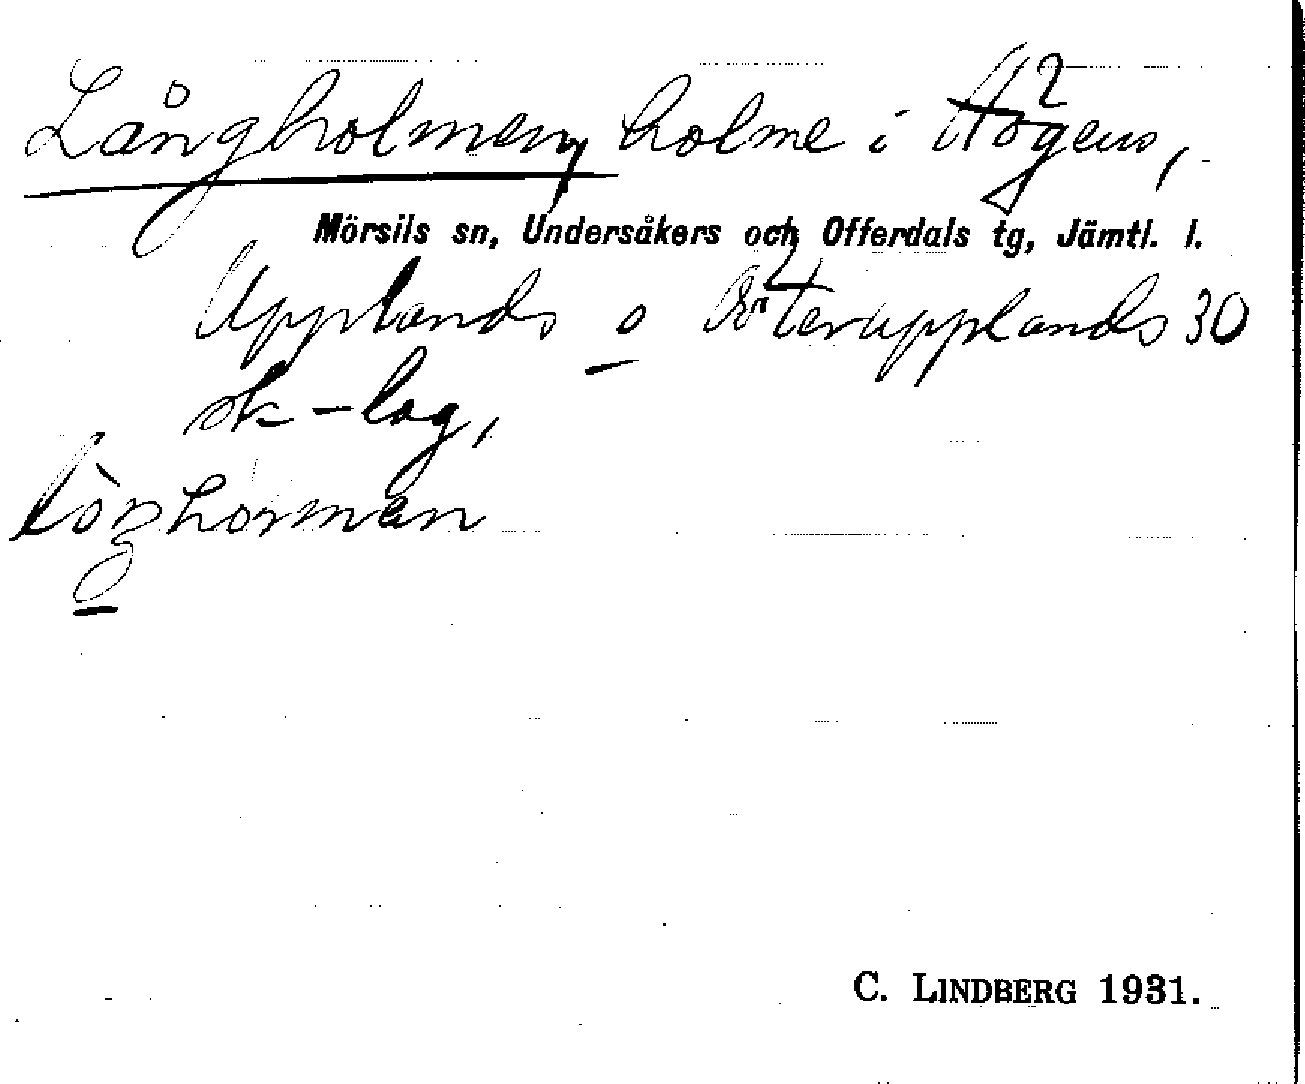 Långholmen, holme i Högen,
Mörsils sn, Undersåkers och Offerdals tg, Jämtl. l.
Upplands o Österupplands 30
sk-lag,
C. LINDBERG 1931.